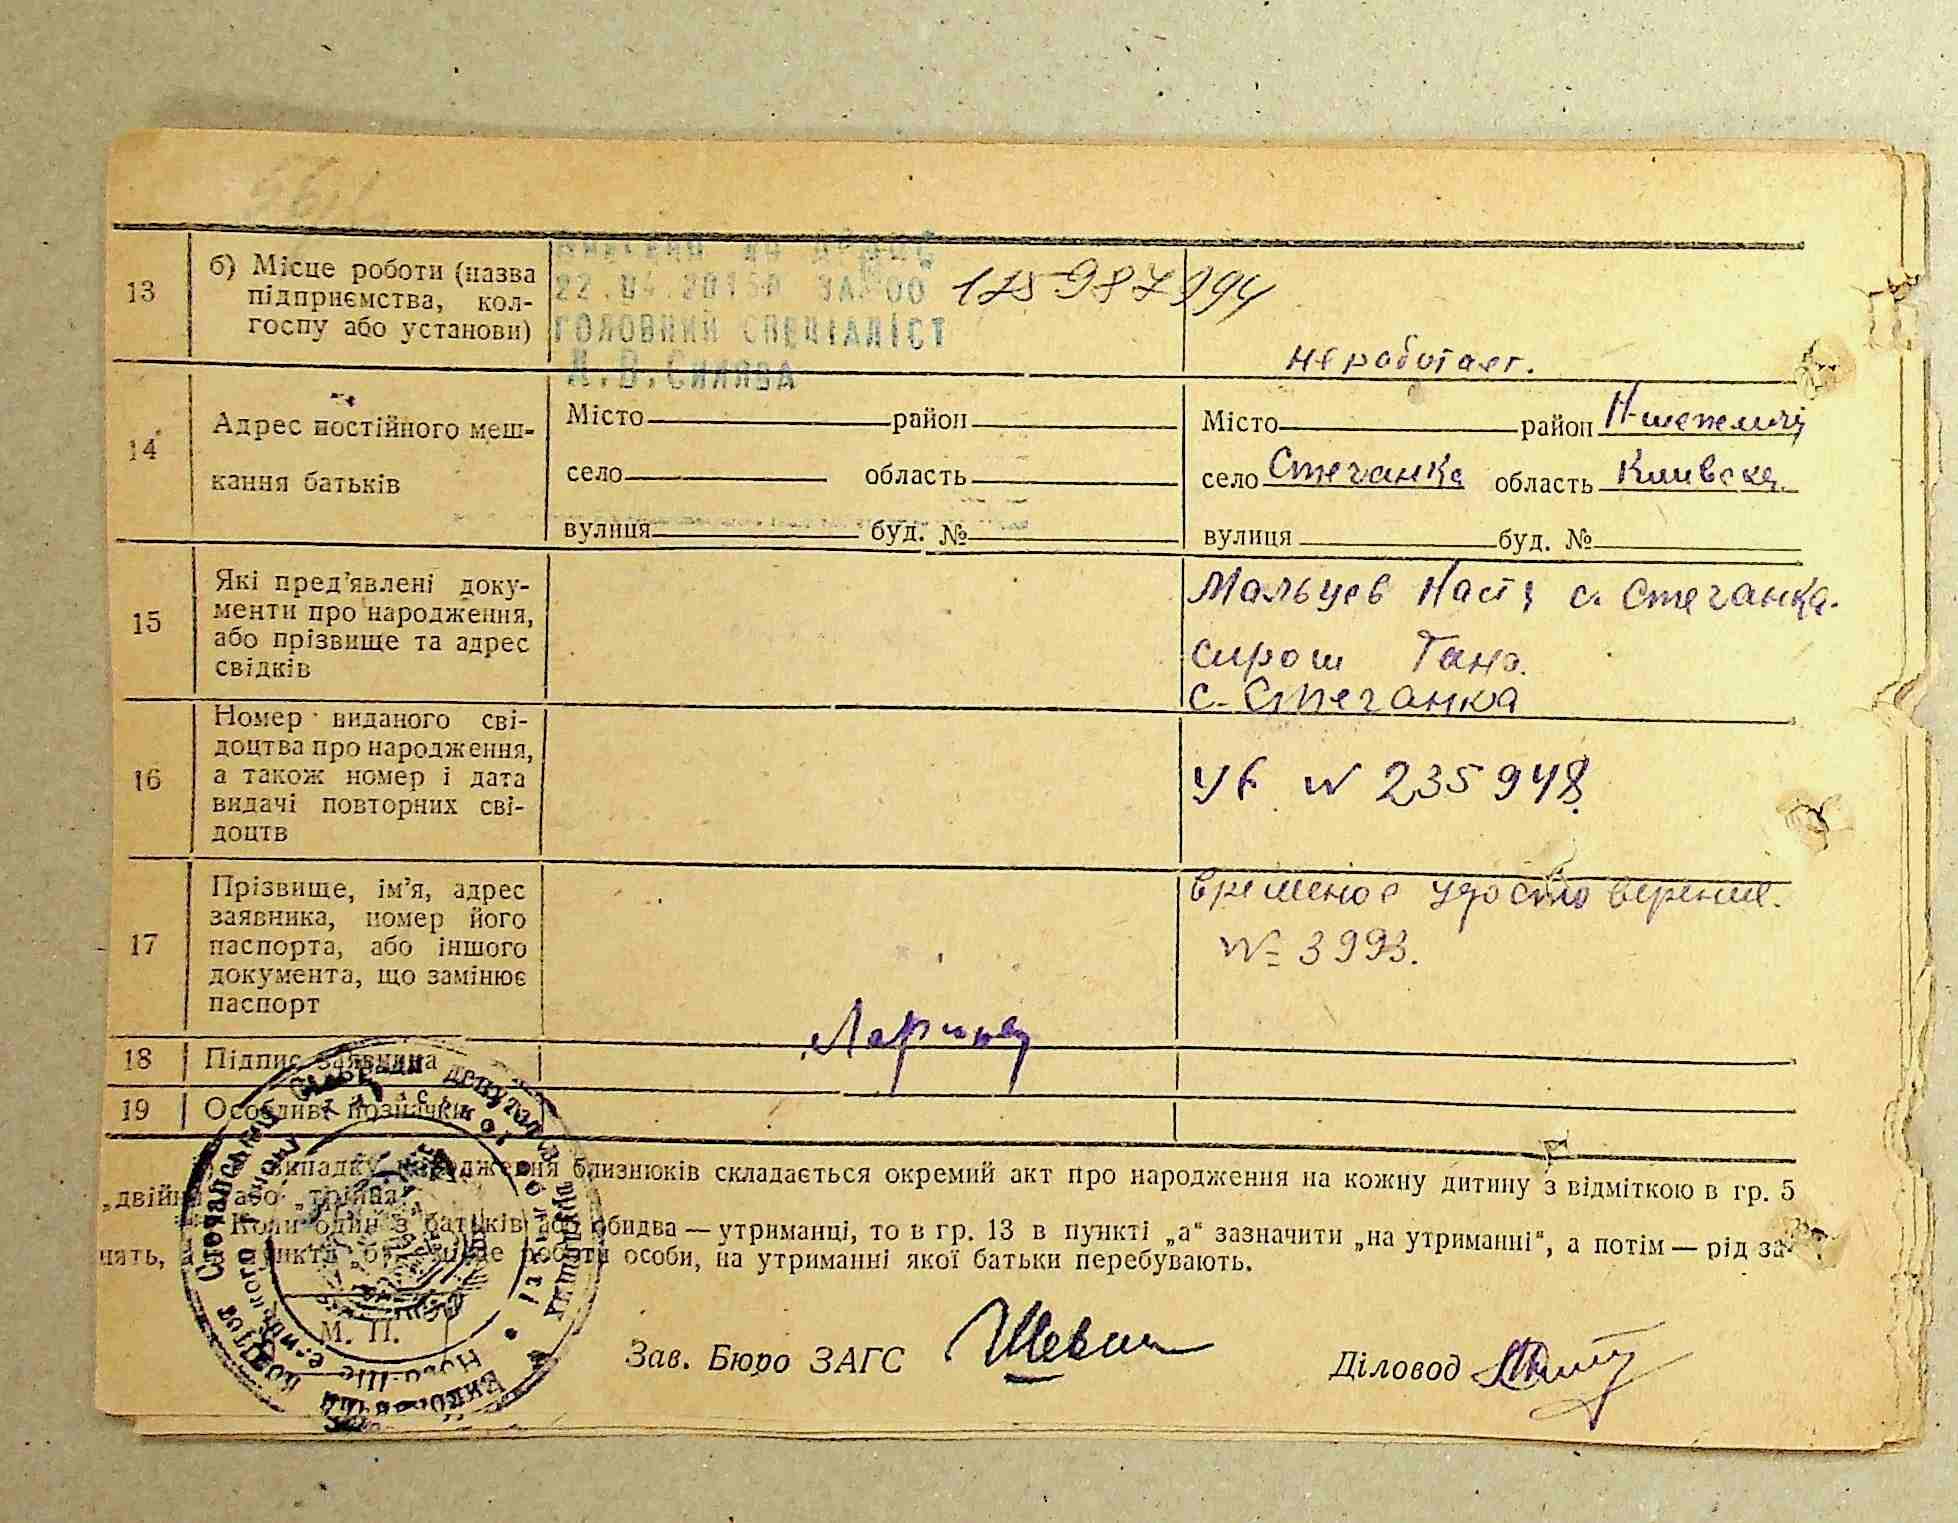 13
б) Місце роботи (назва
підприємства, кол-
госпу або установи)
ГОЛОВНИЙ СПЕЦІАЛІСТ
не работает.
14
Адрес постійного меш-
кання батьків
Місто район
село область
вулиця буд. №
Місто район Н-шепеличі
село Стечанка область Киивска
вулиця буд. №
15
Які пред'явлені доку-
менти про народження,
або прізвище та адрес
свідків
Мальцев Настя с. Стечанка.
сирош Гана.
с. Стечанка
16
Номер виданого сві-
доцтва про народження,
а також номер і дата
видачі повторних сві-
доцтв
№ 235948
17
Прізвище, ім'я, адрес
заявника, номер його
паспорта, або іншого
документа, що замінює
паспорт
временое удостоверение.
№ 3993.
18 Підпис заявника
19 Особливі позначки
випадку народження близнюків складається окремий акт про народження на кожну дитину з відміткою в гр. 5
„двійня" або „трійня"
Коли один з батьків або обидва — утриманці, то в гр. 13 в пункті „а" зазначити „на утриманні", а потім — рід за-
нять, пункті місце роботи особи, на утриманні якої батьки перебувають.
М. П.
Зав. Бюро ЗАГС
Діловод